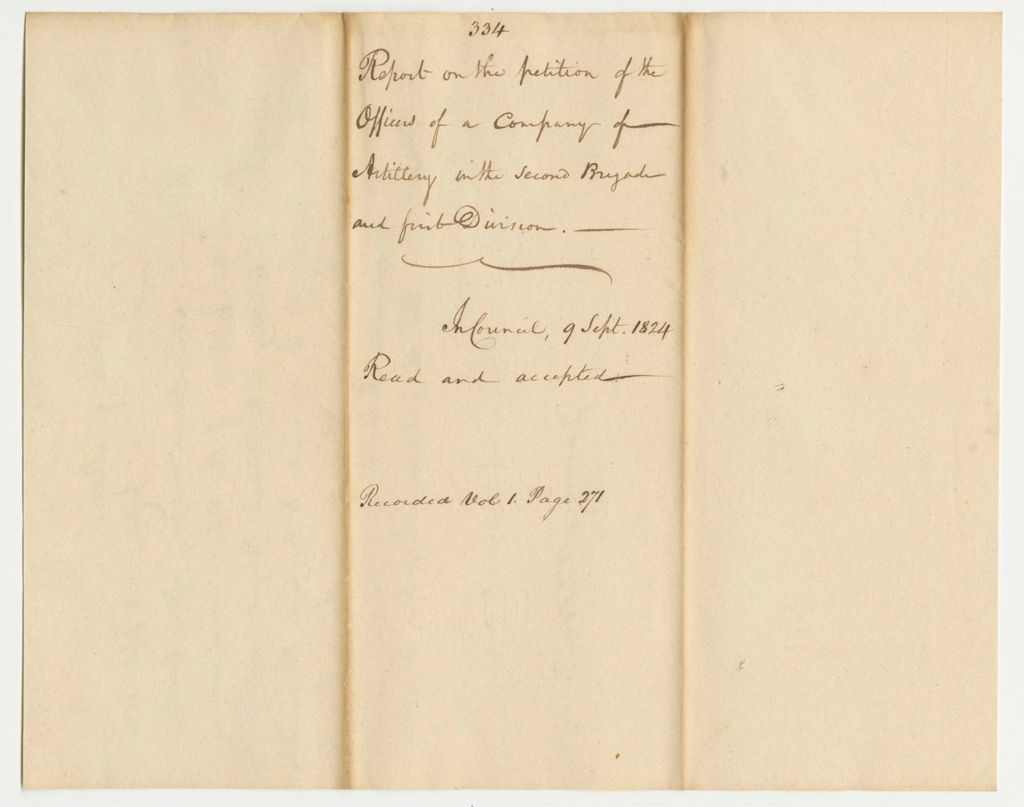 334
Report on the petition of the
Officers of a Company of
Artillery in the second Brigade
and first Division.
In Council, 9 Sept. 1824
Read and accepted
Recorded Vol 1. Page 271